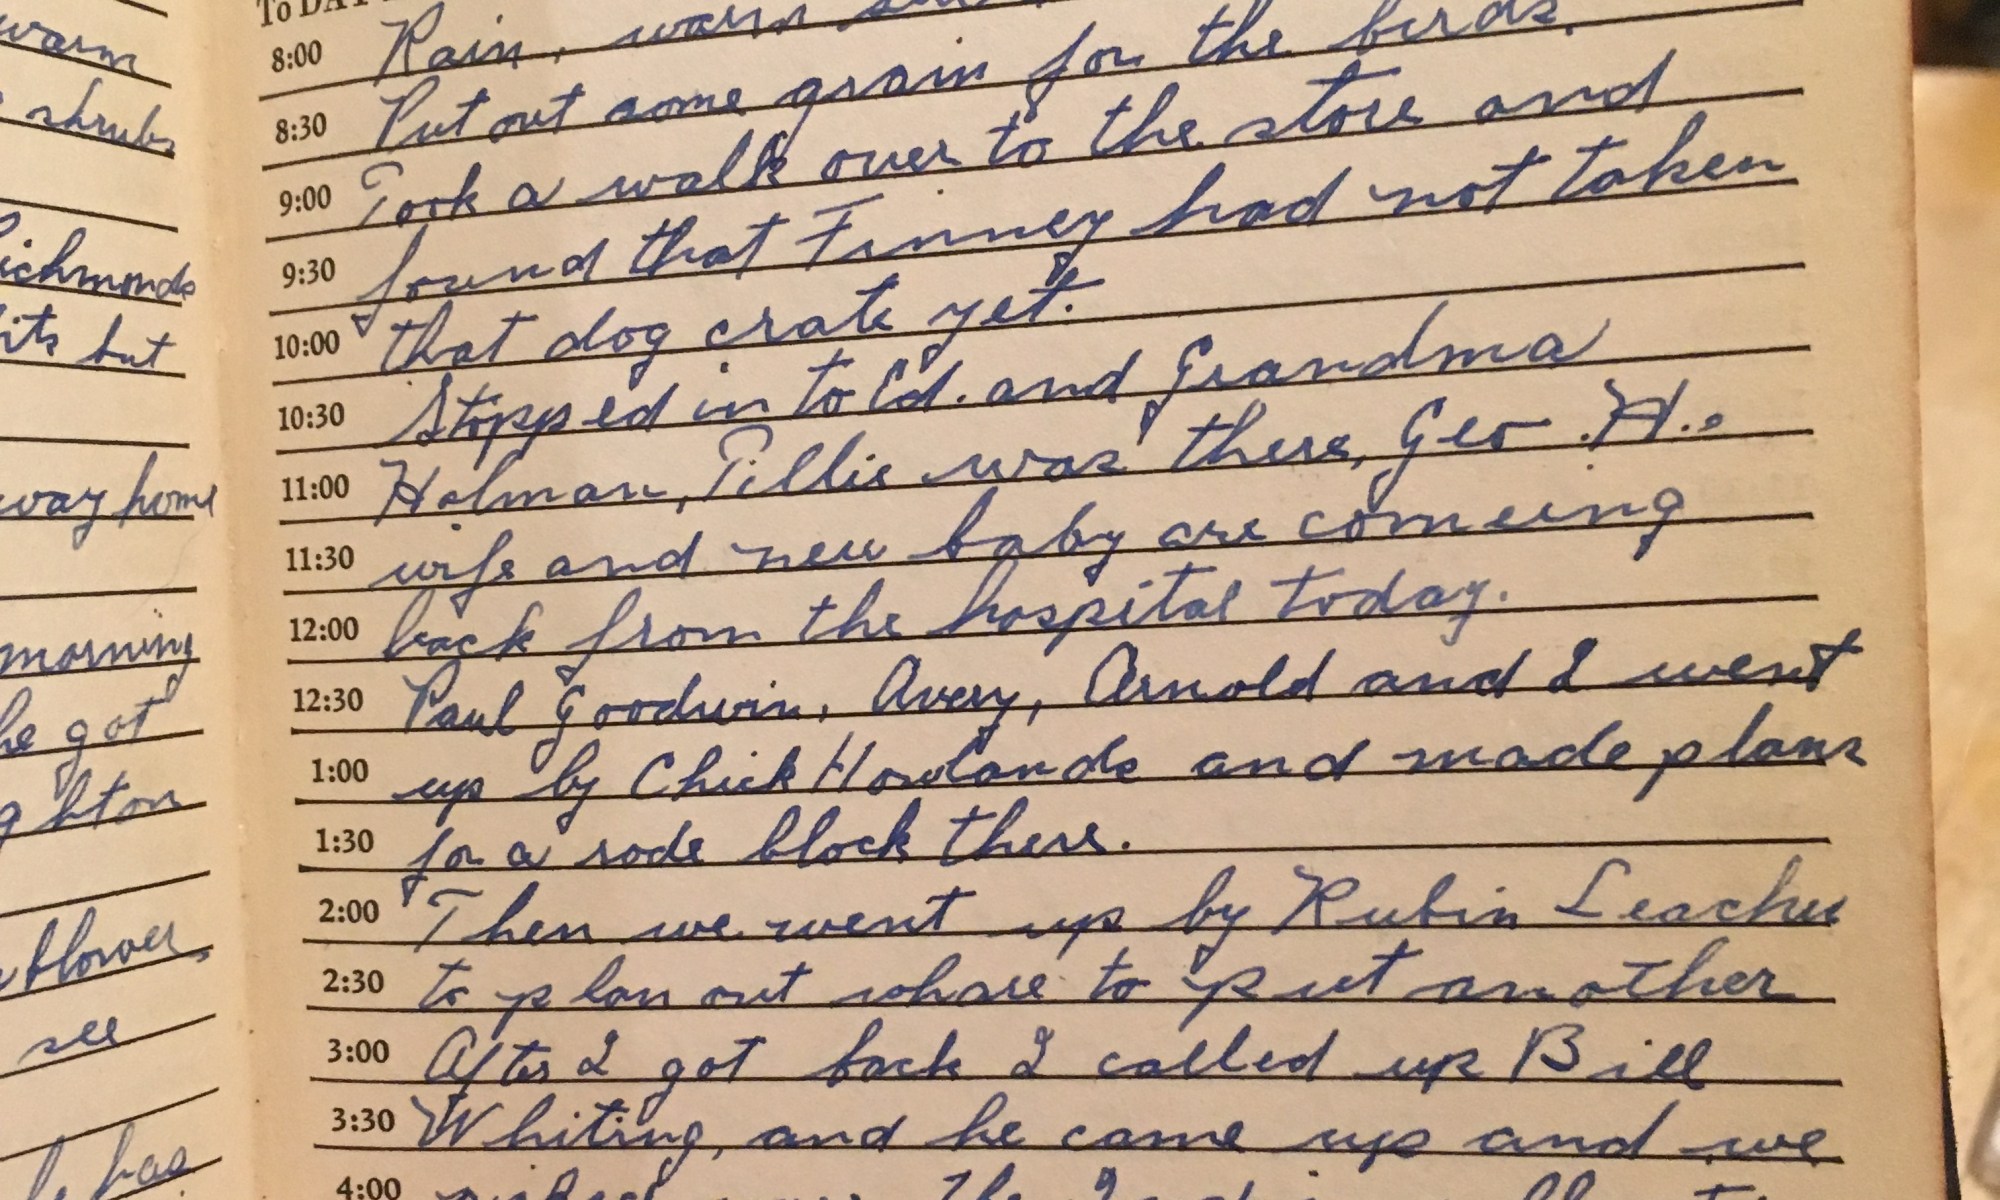 warm
shrubs
ichmonds
its but
way home
morning
he got
ghton
blower
see
has
To DA
8:00 Rain, warm
8:30 Put out some grain for the birds.
9:00 Took a walk over to the store and
9:30 found that Finney had not taken
10:00 that dog crate yet.
10:30 Stopped in to Ed. and Grandma
11:00 Holman, Tillie was there, Geo. H.s
11:30 wife and new baby are comeing
12:00 back from the hospital today.
12:30 Paul Goodwin, Avery, Arnold and I went
1:00 up by Chick Howlands and made plans
1:30 for a rode block there.
2:00 Then we went up by Rubin Leaches
2:30 to plan out whare to put another
3:00 After I got back I called up Bill
3:30 Whiting, and he came up and we
4:00